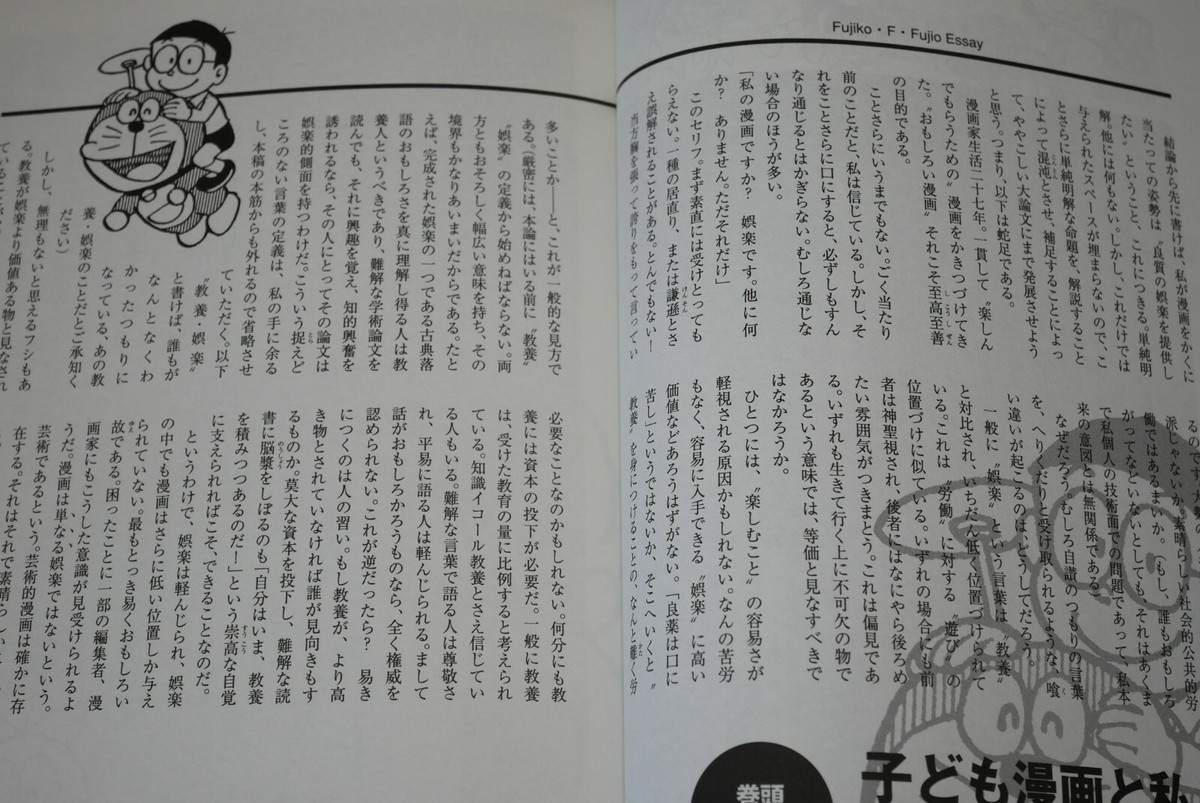 Fujiko・F・Fujio Essay
結論から先に書けば、私が漫画をかくに
当たっての姿勢は〝良質の娯楽を提供し
たい〟ということ、これにつきる。単純明
解、他には何もない。しかし、これだけでは
与えられたスペースが埋まらないので、こ
とさらに単純明解な命題を、解説すること
によって混沌とさせ、補足することによっ
て、ややこしい大論文にまで発展させよう
と思う。つまり、以下は蛇足である。
漫画家生活二十七年。一貫して〝楽しん
でもらうための〟漫画をかきつづけてき
た。〝おもしろい漫画〟それこそ至高至善
の目的である。
ことさらにいうまでもない。ごく当たり
前のことだと、私は信じている。しかし、そ
れをことさらに口にすると、必ずしもすん
なり通じるとはかぎらない。むしろ通じな
い場合のほうが多い。
「私の漫画ですか? 娯楽です。他に何
か? ありません。ただそれだけ」
このセリフ。まず素直には受けとっても
らえない。一種の居直り、または謙遜とさ
え誤解されることがある。とんでもない!
当方胸を張って誇りをもって言ってい
派じゃないか。素晴らしい社会的公共的労
働ではあるまいか。もし、誰もおもしろ
がってくれないとしても、それはあくま
で私個人の技術面での問題であって、私本
来の意図とは無関係である。
なぜだろう。むしろ自讃のつもりの言葉
を、へりくだりと受け取られるような、喰
い違いが起こるのは、どうしてだろう。
一般に〝娯楽〟という言葉は〝教養〟
と対比され、いちだん低く位置づけられて
いる。これは〝労働〟に対する〝遊び〟の
位置づけに似ている。いずれの場合にも前
者は神聖視され、後者にはなにやら後ろめ
たい雰囲気がつきまとう。これは偏見であ
る。いずれも生きて行く上に不可欠の物で
あるという意味では、等価と見なすべきで
はなかろうか。
ひとつには、〝楽しむこと〟の容易さが
軽視される原因かもしれない。なんの苦労
もなく、容易に入手できる〝娯楽〟に高い
価値などあろうはずがない。「良薬は口に
苦し」というではないか、そこへいくと〝
教養〟を身につけることの、なんと難く労
子ども漫画と私
巻頭
多いことか――と、これが一般的な見方で
ある。厳密には、本論にはいる前に〝教養〟
〝娯楽〟の定義から始めねばならない。両
方ともおそろしく幅広い意味を持ち、その
境界もかなりあいまいだからである。たと
えば、完成された娯楽の一つである古典落
語のおもしろさを真に理解し得る人は教
養人というべきであり、難解な学術論文を
読んでも、それに興趣を覚え、知的興奮を
誘われるなら、その人にとってその論文は
娯楽的側面を持つわけだ。こういう捉えど
ころのない言葉の定義は、私の手に余る
し、本稿の本筋からも外れるので省略させ
ていただく。以下
〝教養・娯楽〟
と書けば、誰もが
なんとなくわ
かったつもりに
なっている、あの教
養・娯楽のことだとご承知く
ださい)
しかし、無理もないと思えるフシもあ
る。教養が娯楽より価値ある物と見なされ
必要なことなのかもしれない。何分にも教
養には資本の投下が必要だ。一般に教養
は、受けた教育の量に比例すると考えられ
ている。知識イコール教養とさえ信じてい
る人もいる。難解な言葉で語る人は尊敬さ
れ、平易に語る人は軽んじられる。まして
話がおもしろかろうものなら、全く権威を
認められない。これが逆だったら? 易き
につくのは人の習い。もし教養が、より高
き物とされていなければ誰が見向きもす
るものか。莫大な資本を投下し、難解な読
書に脳漿をしぼるのも「自分はいま、教養
を積みつつあるのだ!」という崇高な自覚
に支えられればこそ、できることなのだ。
というわけで、娯楽は軽んじられ、娯楽
の中でも漫画はさらに低い位置しか与え
られていない。最もとっき易くおもしろい
故である。困ったことに一部の編集者、漫
画家にもこうした意識が見受けられるよ
うだ。漫画は単なる娯楽ではないという。
芸術であるという。芸術的漫画は確かに存
在する。それはそれで素晴らしい